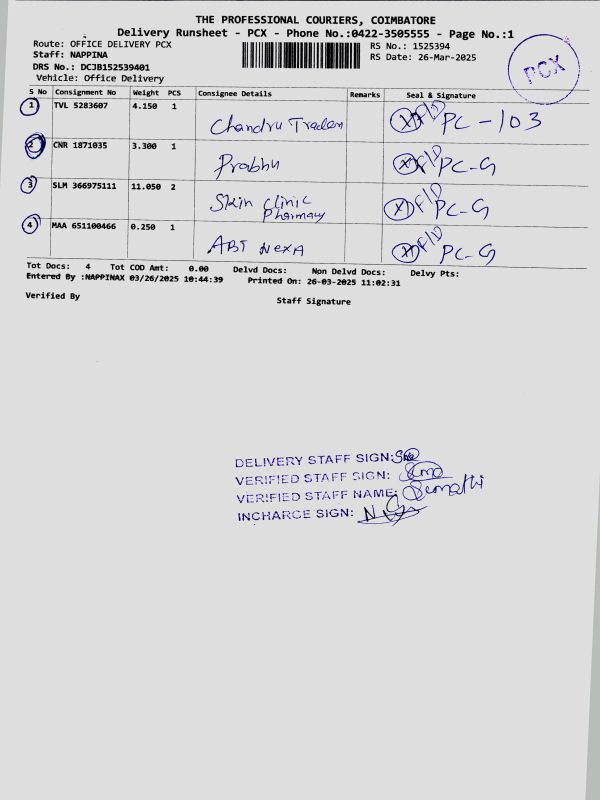 THE PROFESSIONAL COURIERS, COIMBATORE
Delivery Runsheet - PCX - Phone No.:0422-3505555 - Page No.:1
Route: OFFICE DELIVERY PCX
RS No.: 1525394
Staff: NAPPINA
RS Date: 26-Mar-2025
DRS No.: DCJB152539401
Vehicle: Office Delivery
PCX
S No Consignment No Weight PCS Consignee Details Remarks Seal & Signature
1 TVL 5283607 4.150 1 Chandru Traders X F/D PC-103
2 CNR 1871035 3.300 1 Prabhu X F/D PC-G
3 SLM 366975111 11.050 2 Skin Clinic Pharmacy X F/D PC-G
4 MAA 651100466 0.250 1 ABT NEXA X F/D PC-G
Tot Docs: 4 Tot COD Amt: 0.00 Delvd Docs: Non Delvd Docs: Delvy Pts:
Entered By :NAPPINAX 03/26/2025 10:44:39 Printed On: 26-03-2025 11:02:31
Verified By Staff Signature
DELIVERY STAFF SIGN:
VERIFIED STAFF SIGN:
VERIFIED STAFF NAME: Sumathi
INCHARGE SIGN: